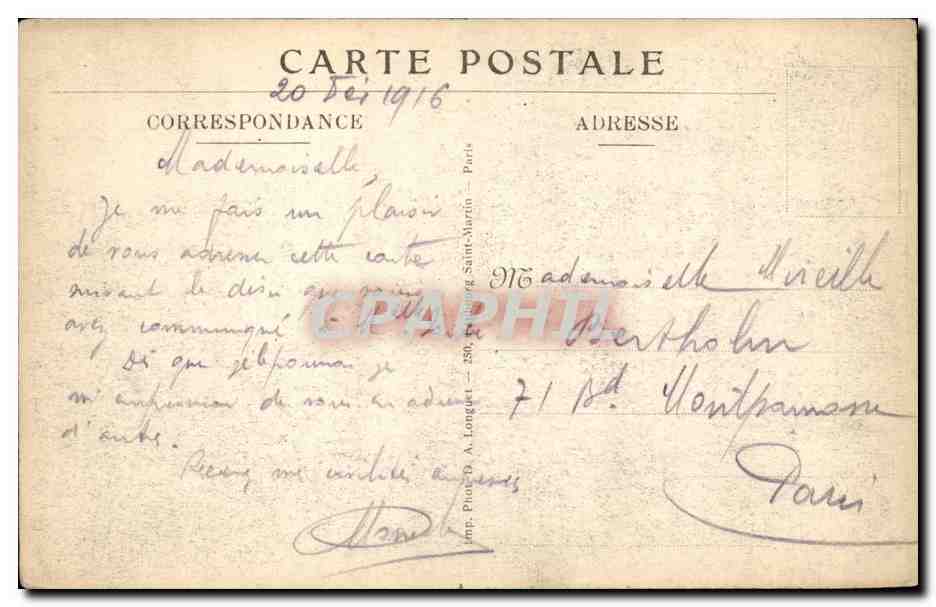 CARTE POSTALE
20 Fév 1916
CORRESPONDANCE
ADRESSE
Mademoiselle,
Je me fais un plaisir
de vous adresser cette carte
suivant le désir que vous
avez communiqué à
Dès que je le pourrai je
m'empresserai de vous en adresser
d'autre.
Recevez mes civilités empressées
Mademoiselle Mireille
Bertholin
71 Bd. Montparnasse
Paris
Imp. Phot. D. A. Longuet — 250, Faubourg Saint-Martin — Paris
CPAPHIL